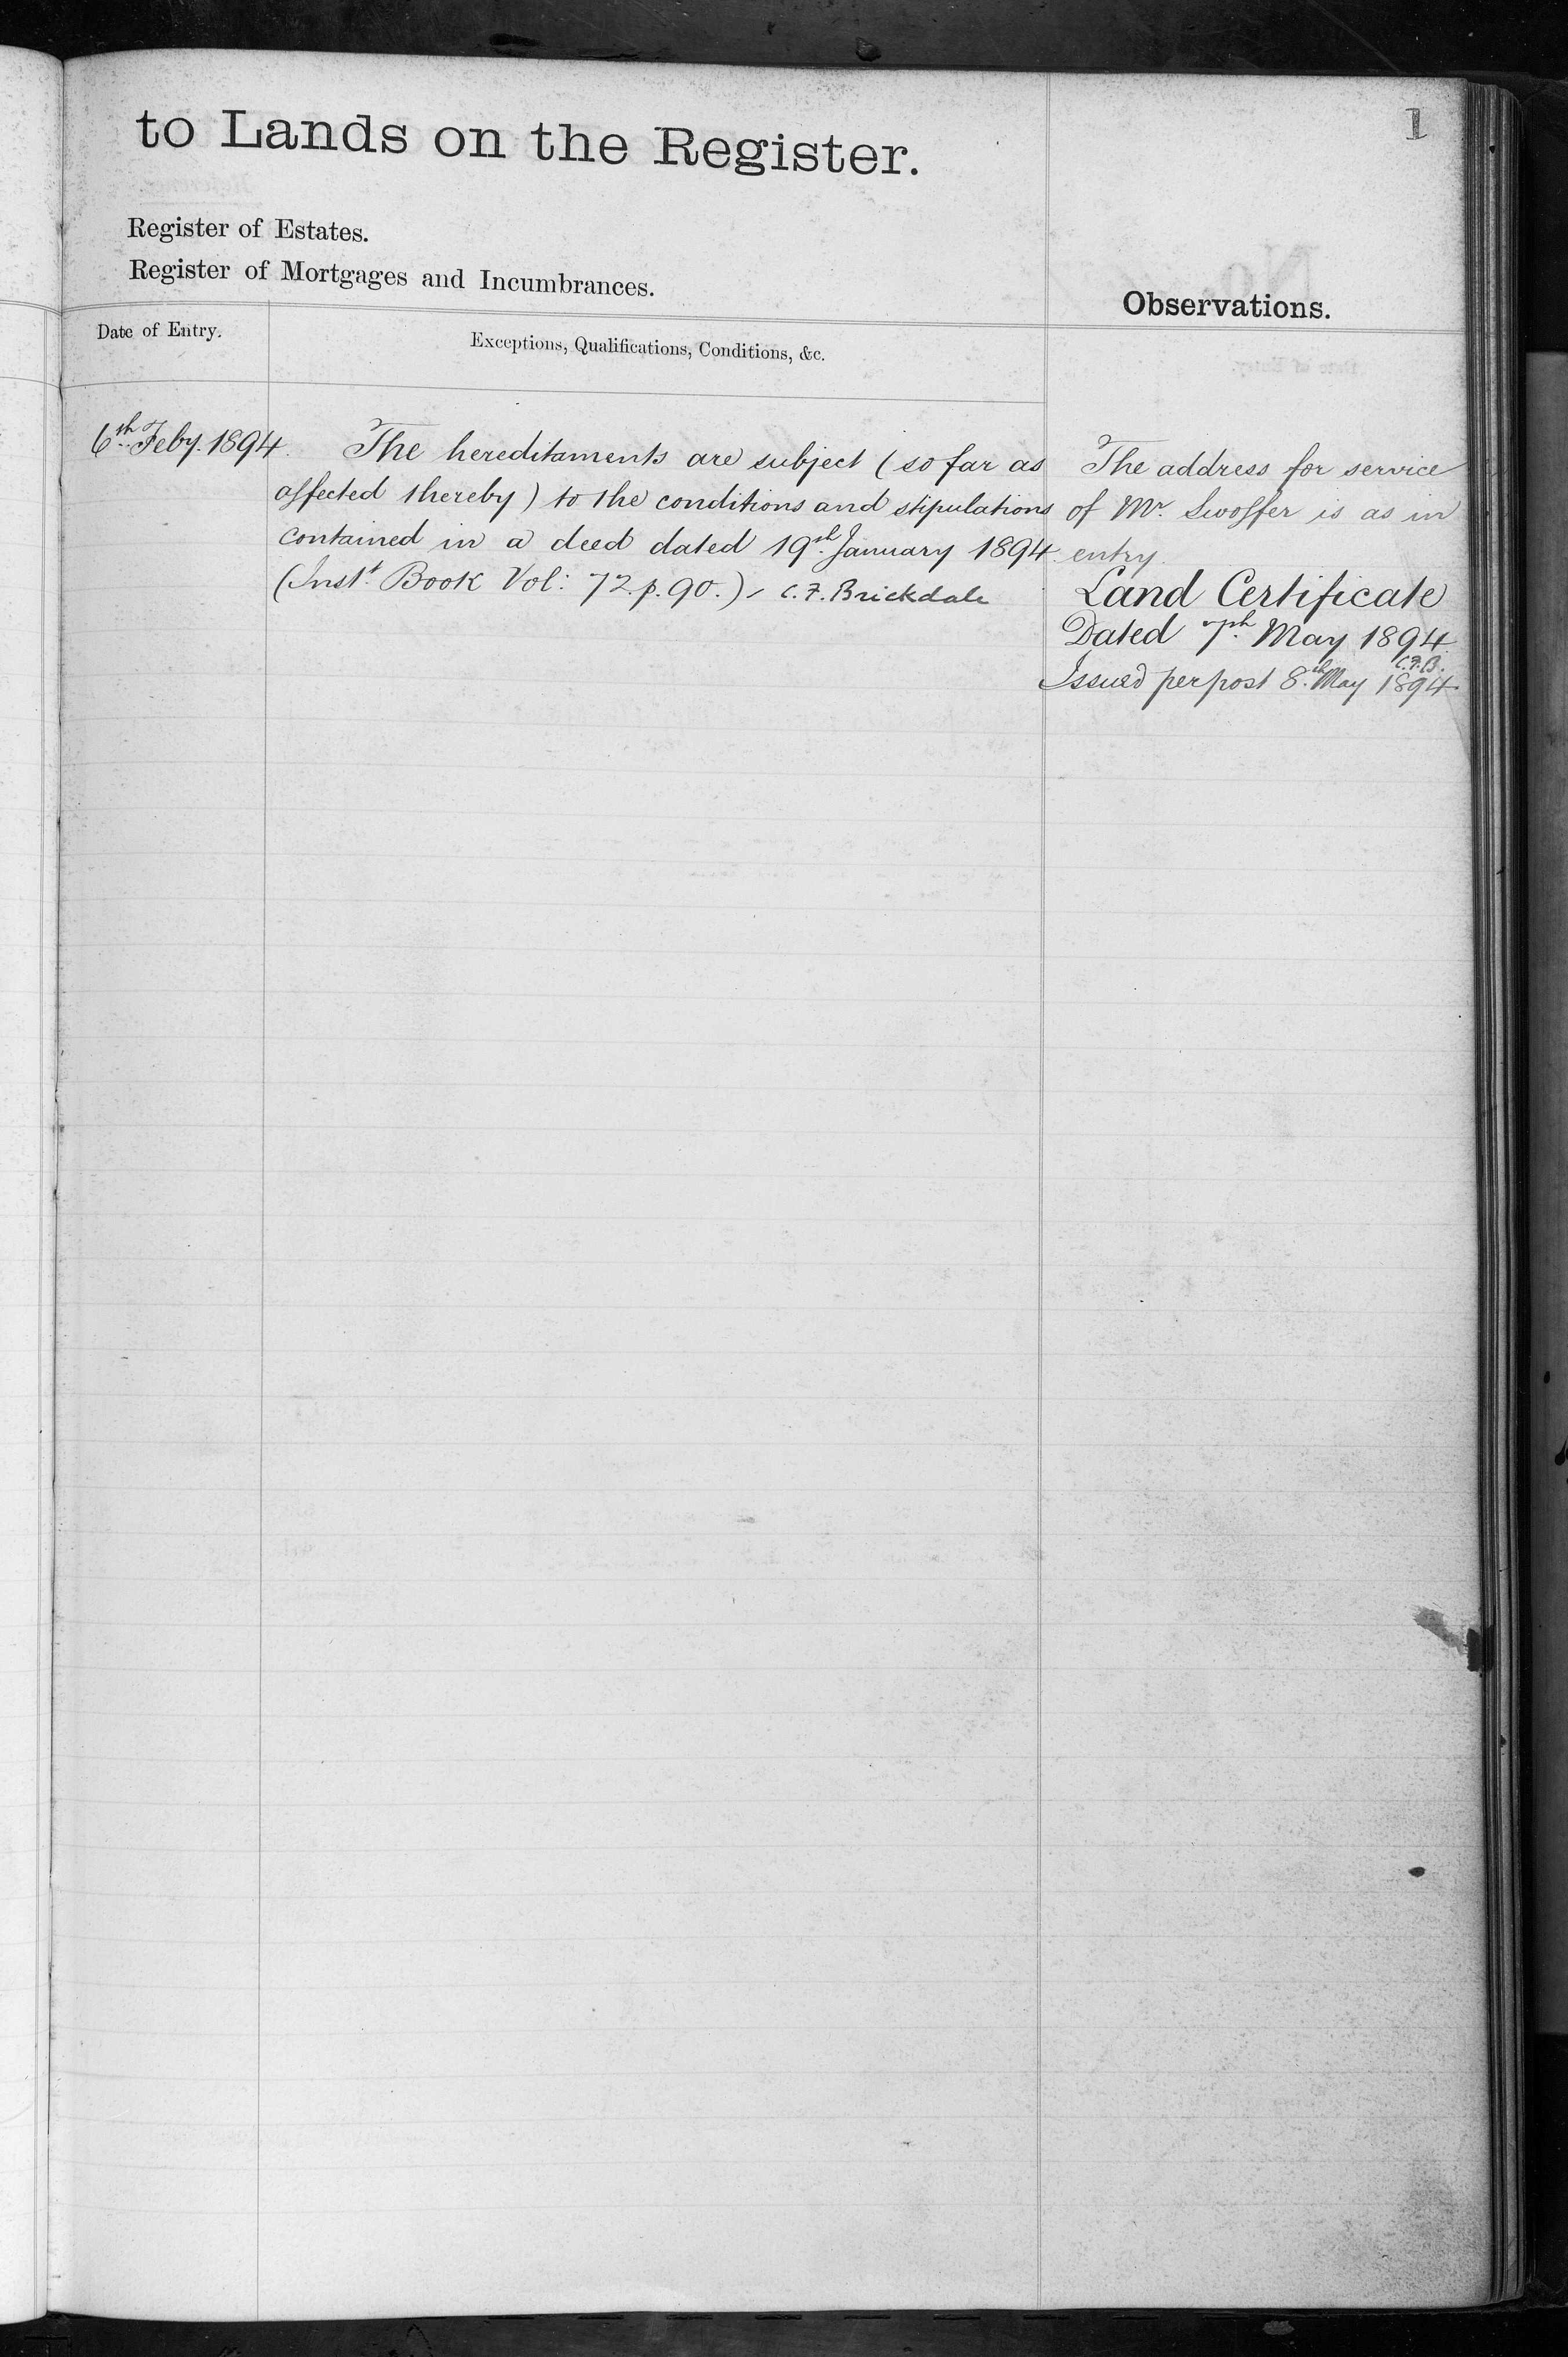 to Lands on the Register.
1
Register of Estates.
Register of Mortgages and Incumbrances.
Observations.
Date of Entry.
Exceptions, Qualifications, Conditions, &c.
6th Feby. 1894.
The hereditaments are subject (so far as
affected thereby) to the conditions and stipulations
contained in a deed dated 19th January 1894.
(Inst. Book Vol: 72. p. 90.) C. F. Brickdale
The address for service
of Mr. Swoffer is as in
entry.
Land Certificate
Dated 7th May 1894.
C.F.B.
Issued per post 8th May 1894